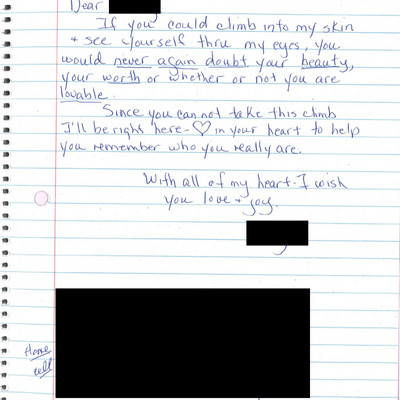 Dear
If you could climb into my skin
+ see yourself thru my eyes, you
would never again doubt your beauty,
your worth or whether or not you are
lovable.
Since you can not take this climb
I'll be right here - ♡ in your heart to help
you remember who you really are.
With all of my heart - I wish
you love + joy.
Home
cell